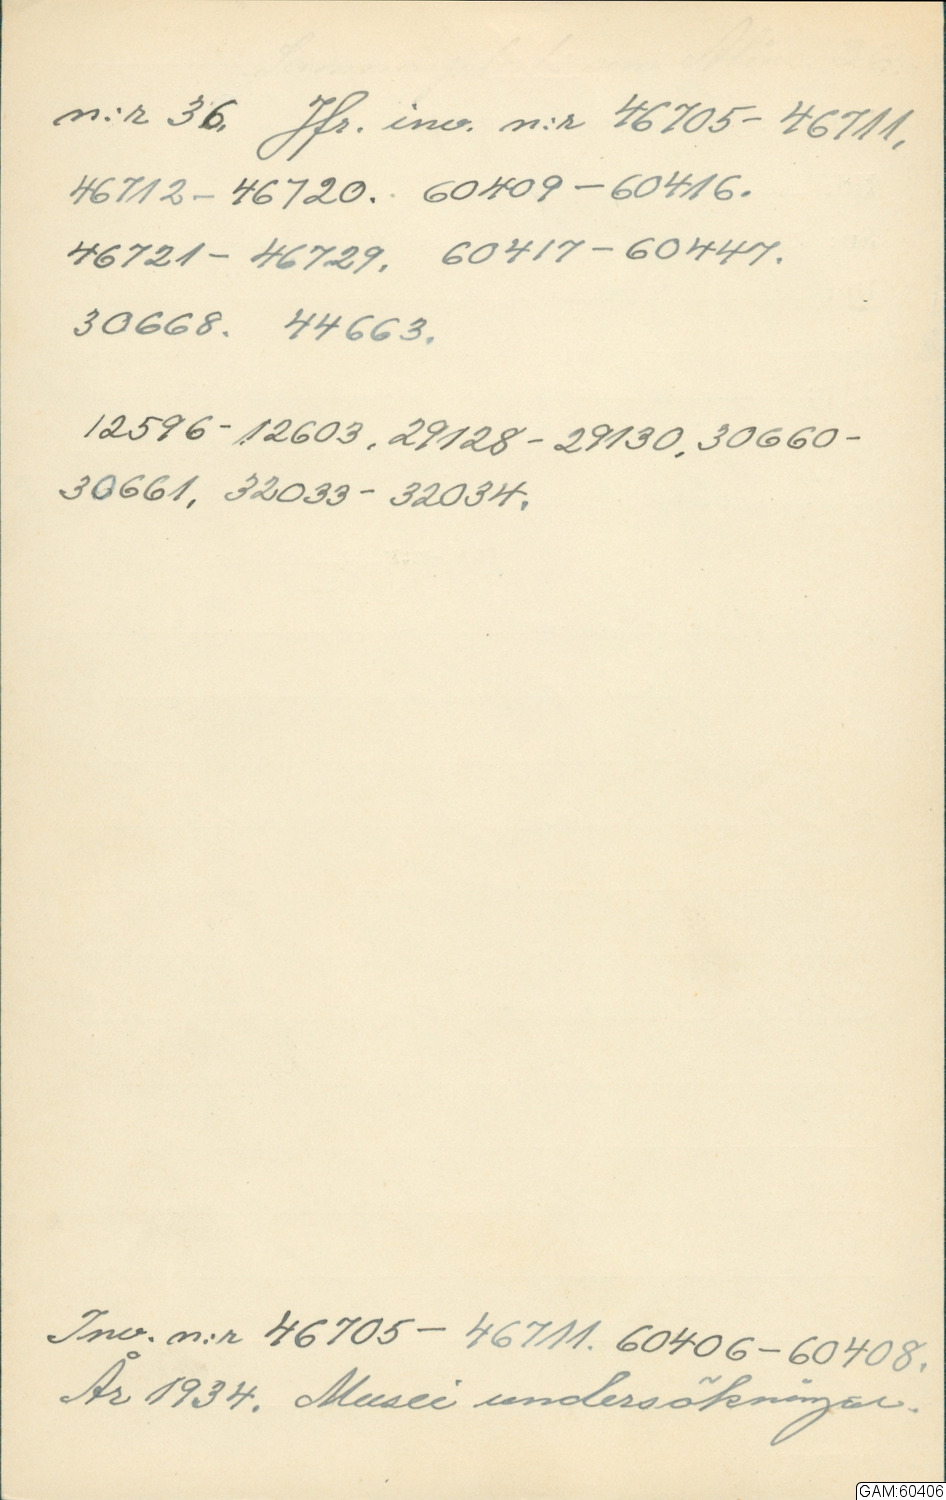 n:r 36. Jfr. inv. n:r 46705- 46711,
46712- 46720. 60409-60416.
46721- 46729. 60417-60447.
30668. 44663.
12596- 12603, 29128-29130, 30660-
30661, 32033- 32034.
Inv. n:r 46705- 46711. 60406-60408.
År 1934. Musei undersökningar.
GAM:60406